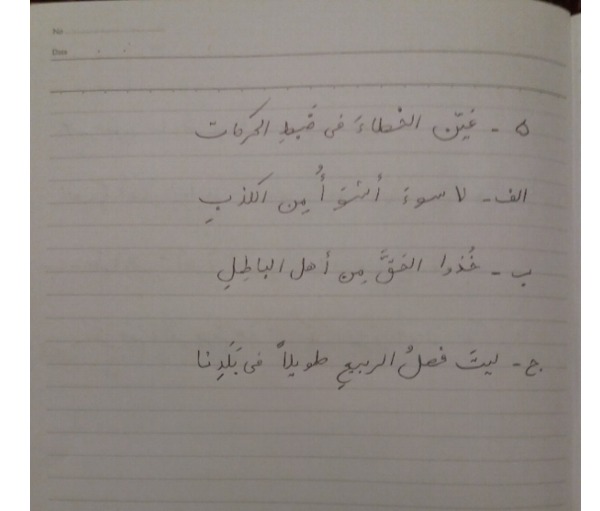 No
Date
۵ - عَیّن الخطاءَ فی ضَبطِ الحرکات
الف - لا سوءَ أسْوَأُ مِن الکذبِ
ب - خُذوا الحَقَّ مِن أهل الباطِلِ
ج - لیتَ فصلُ الربیعِ طویلاً فی بَلَدِنا